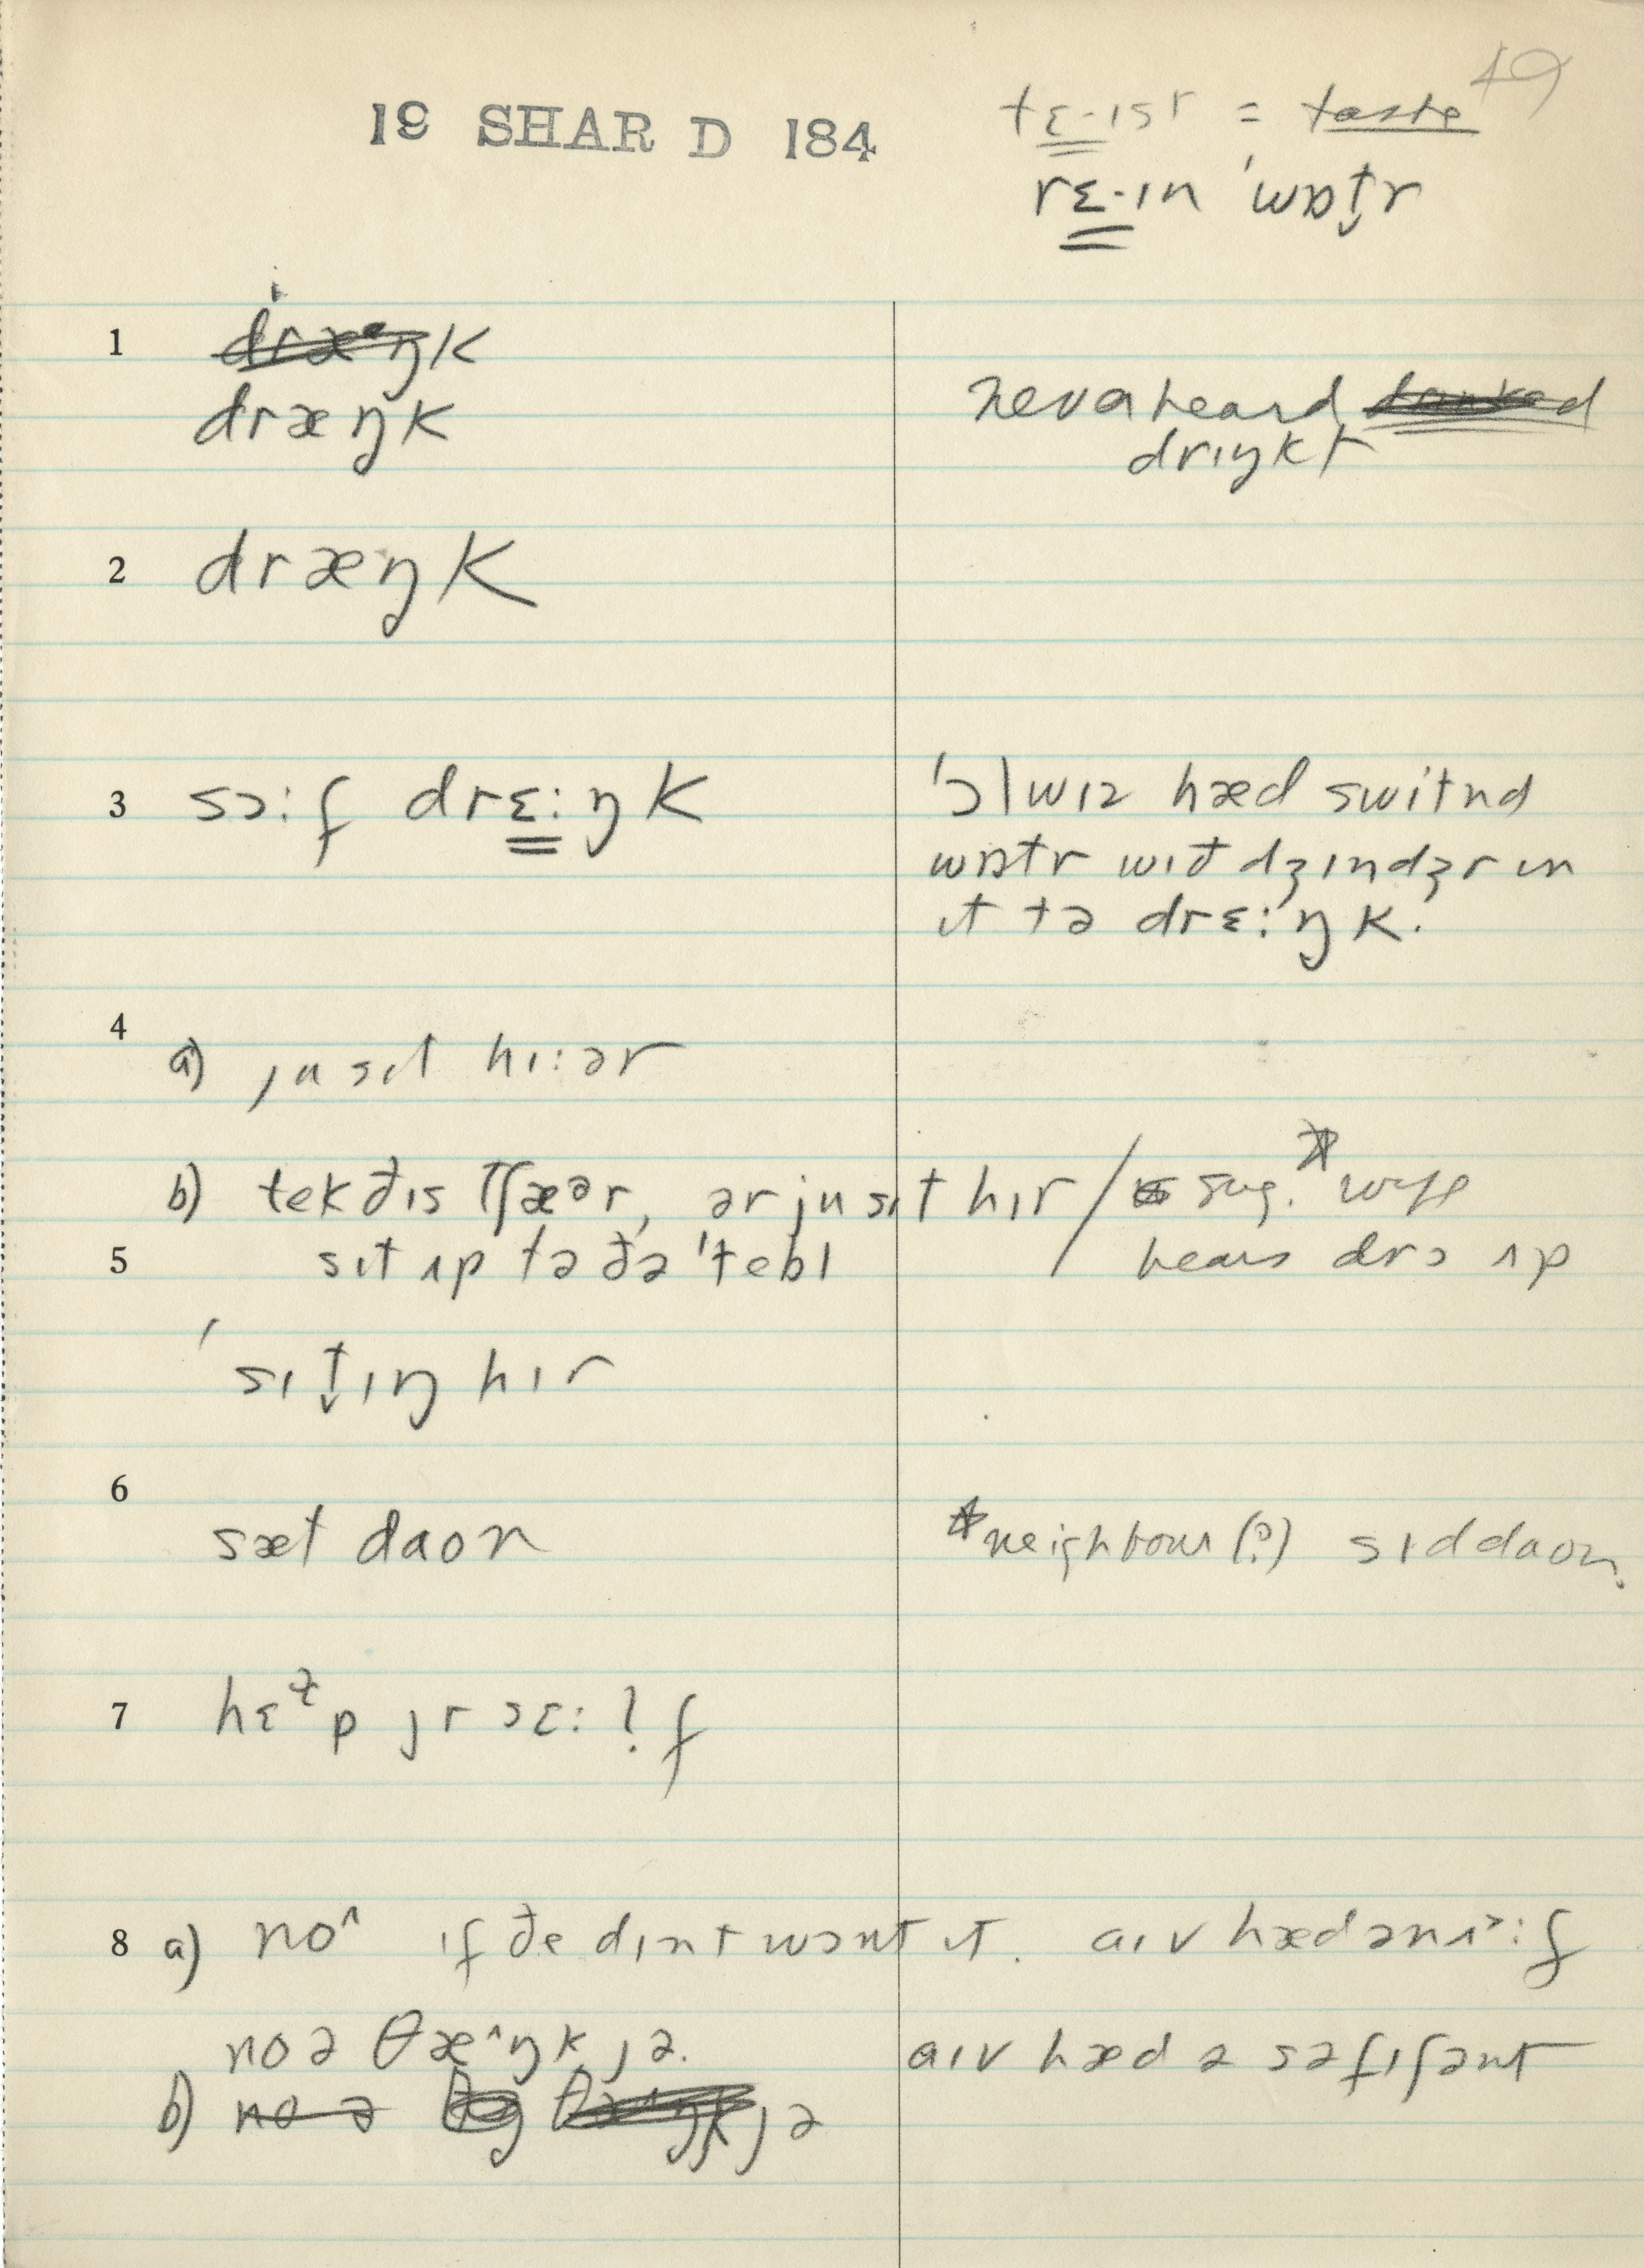 19 SHAR D 184
49
tɛ-ɪst = taste
rɛ-ɪn ˈwɒt̬r
1 dræᵊŋk
dræŋk
never heard
drɪŋkt
2 dræŋk
3 sɔ:f drɛ:ŋk
ˈɔlwɪz hæd switnd
wɒtr wɪð dʒɪndʒr ɪn
ɪt tə drɛ:ŋk.
4
a) ju sɪt hɪ:ər
b) tek ðɪs tʃæᵊr, ər ju sɪt hɪr / sug.* wife
5 sɪt ʌp tə ðə ˈtebl hears drɔ ʌp
ˈsɪt̬ɪŋ hɪr
6
sæt daon
*neighbour (?) sɪddaon.
7 hɛɫp jr sɛ:lf
8 a) no^ ɪf ðe dɪnt wɔnt ɪt. aɪv hæd ənʌ>:f
no ə θæ^ŋk jə. aɪv hæd ə səfɪʃənt
b) no ə jə